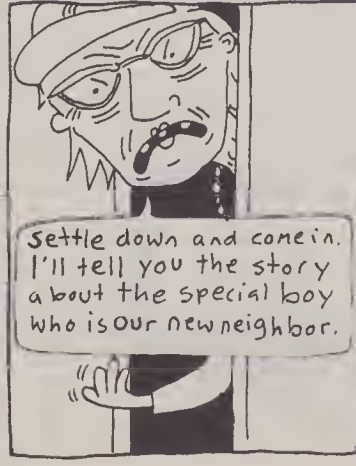 Settle down and come in.
I'll tell you the story
about the special boy
who is our new neighbor.